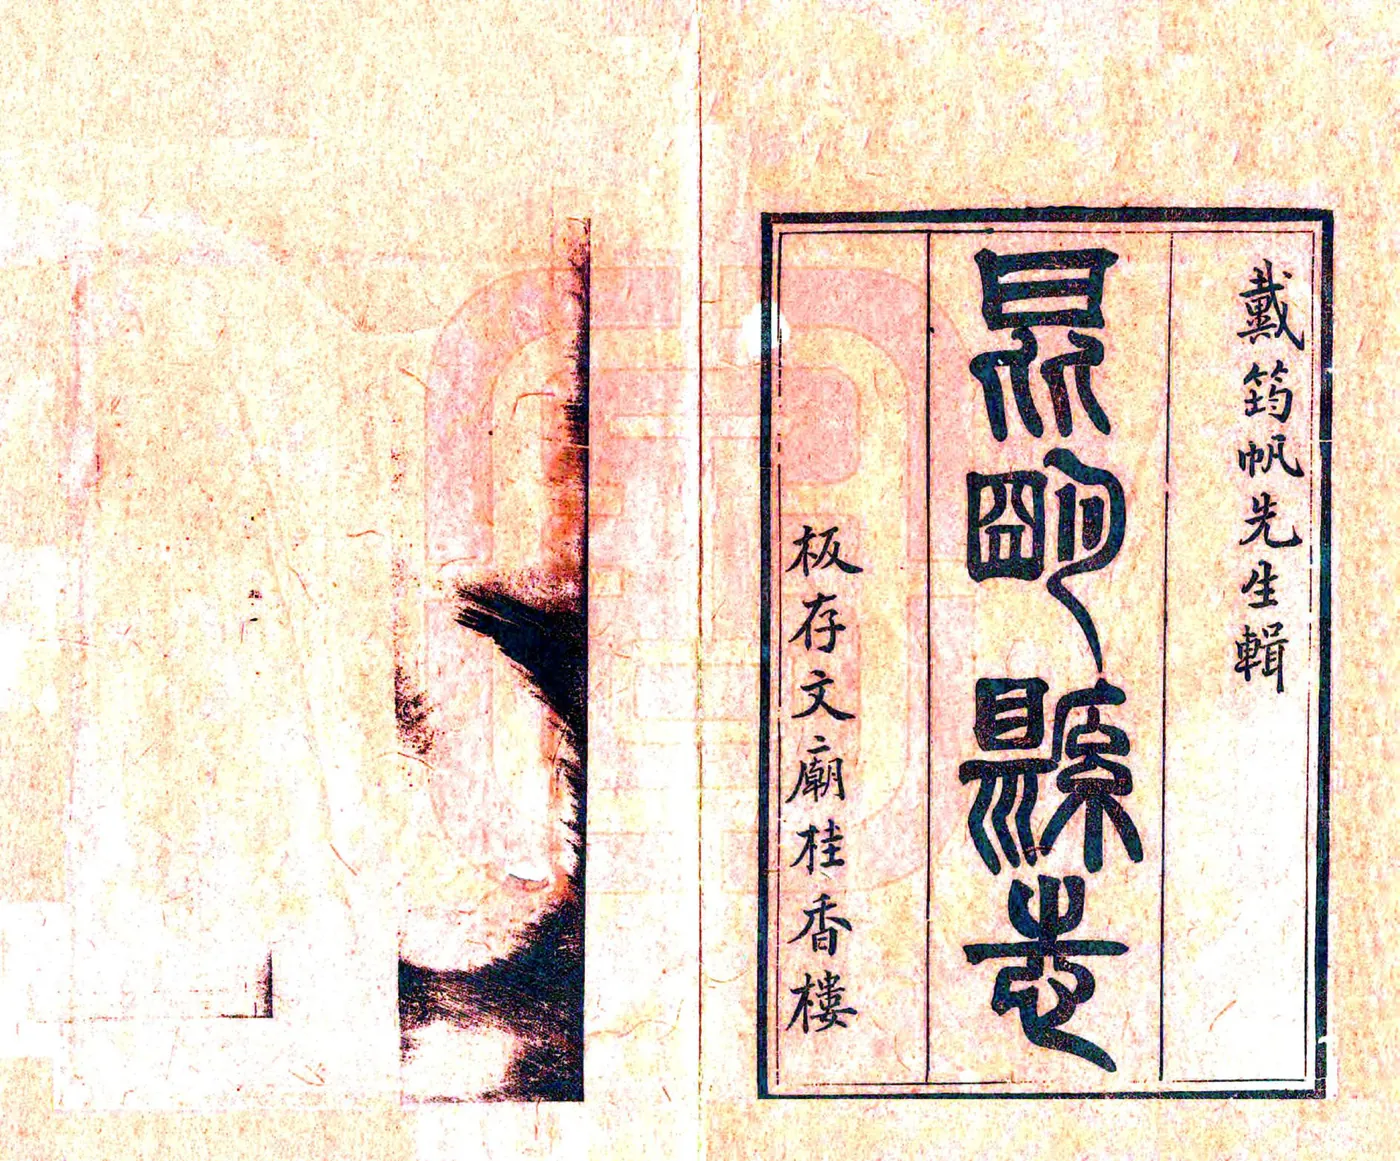 戴筠帆先生輯
昆明縣志
板存文廟桂香樓